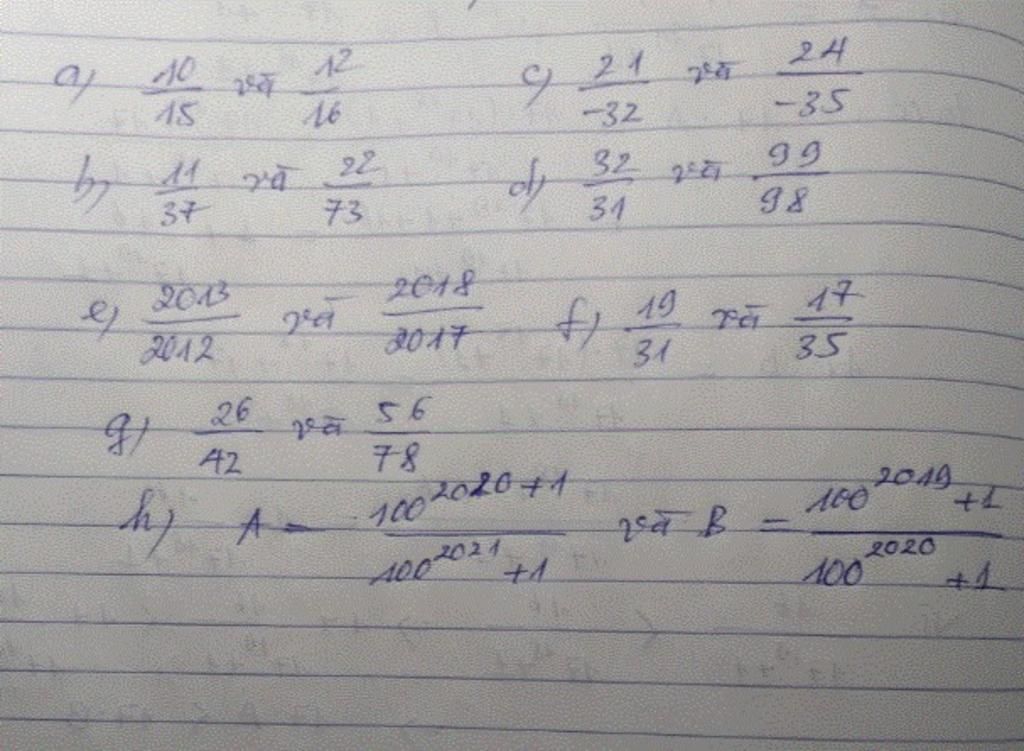 a) 10/15 và 12/16 c) 21/-32 và 24/-35
b) 11/37 và 22/73 d) 32/31 và 99/98
e) 2013/2012 và 2018/2017 f) 19/31 và 17/35
g) 26/42 và 56/78
h) A = 100^2020 + 1 / 100^2021 + 1 và B = 100^2019 + 1 / 100^2020 + 1